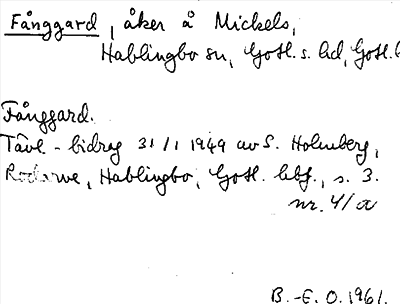 Fånggard, åker å Mickels,
Hablingbo sn, Gotl. s. hd, Gotl. l
Fånggard.
Tävl-bidrag 31/1 1949 av S. Holmberg,
Rodarve, Hablingbo, Gotl. hbf., s. 3.
nr. 4/a
B.-E. O. 1961.